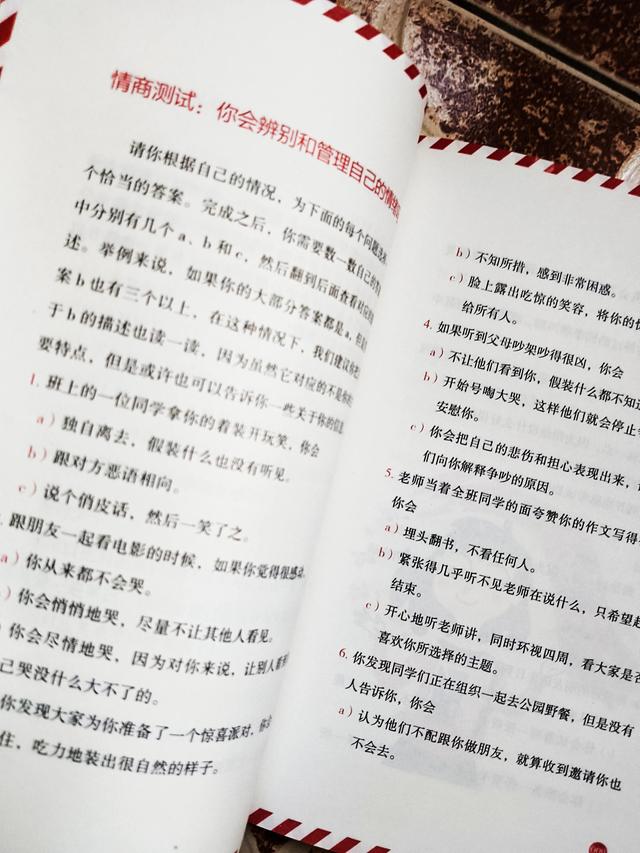 情商测试：你会辨别和管理自己的情绪
请你根据自己的情况，为下面的每个问题选
个恰当的答案。完成之后，你需要数一数自己的
中分别有几个a、b和c，然后翻到后面查看对应的
述。举例来说，如果你的大部分答案都是a，但是
案b也有三个以上，在这种情况下，我们建议你把
于b的描述也读一读，因为虽然它对应的不是你的
要特点，但是或许也可以告诉你一些关于你的信息
1. 班上的一位同学拿你的着装开玩笑，你会
a）独自离去，假装什么也没有听见。
b）跟对方恶语相向。
c）说个俏皮话，然后一笑了之。
跟朋友一起看电影的时候，如果你觉得很感动，
a）你从来都不会哭。
）你会悄悄地哭，尽量不让其他人看见。
）你会尽情地哭，因为对你来说，让别人看到
己哭没什么大不了的。
你发现大家为你准备了一个惊喜派对，你会
住，吃力地装出很自然的样子。
b）不知所措，感到非常困惑。
c）脸上露出吃惊的笑容，将你的快
给所有人。
4. 如果听到父母吵架吵得很凶，你会
a）不让他们看到你，假装什么都不知道
b）开始号啕大哭，这样他们就会停止争
安慰你。
c）你会把自己的悲伤和担心表现出来，
们向你解释争吵的原因。
5. 老师当着全班同学的面夸赞你的作文写得
你会
a）埋头翻书，不看任何人。
b）紧张得几乎听不见老师在说什么，只希望赶
结束。
c）开心地听老师讲，同时环视四周，看大家是否
喜欢你所选择的主题。
6. 你发现同学们正在组织一起去公园野餐，但是没有
人告诉你，你会
a）认为他们不配跟你做朋友，就算收到邀请你也
不会去。